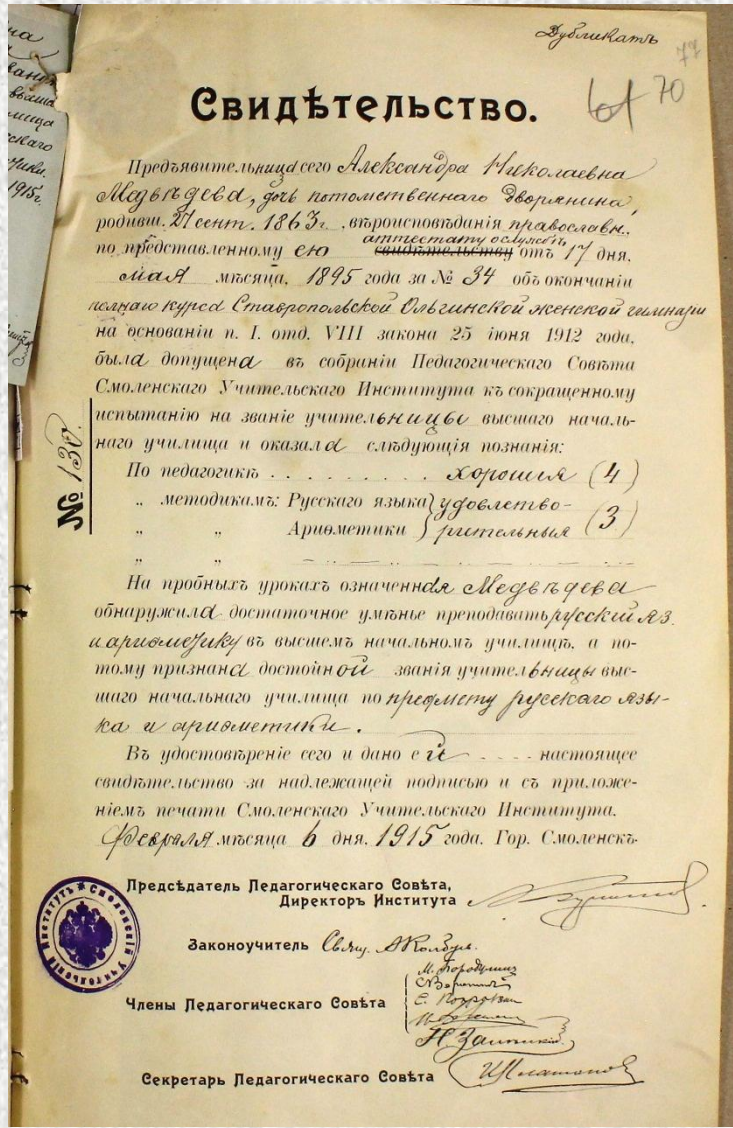 Дубликатъ
77
70
Свидѣтельство.
Предъявительница сего Александра Николаевна
Медвѣдева, дочь потомственнаго дворянина,
родивш. 27 сент. 1863 г., вѣроисповѣданія православн.,
аттестату о службѣ
по представленному ею свидѣтельству отъ 17 дня,
мая мѣсяца, 1895 года за № 34 объ окончаніи
полнаго курса Ставропольской Ольгинской женской гимназіи
на основаніи п. I. отд. VIII закона 25 іюня 1912 года,
была допущена въ собраніи Педагогическаго Совѣта
Смоленскаго Учительскаго Института къ сокращенному
испытанію на званіе учительницы высшаго началь-
наго училища и оказала слѣдующія познанія:
По педагогикѣ . . . . . . . . . . хорошія (4)
„ методикамъ: Русскаго языка } удовлетво-
„ „ Ариѳметики } рительныя (3)
„ „
На пробныхъ урокахъ означенная Медвѣдева
обнаружила достаточное умѣнье преподавать русскій яз.
и ариѳметику въ высшемъ начальномъ училищѣ, а по-
тому признана достойной званія учительницы выс-
шаго начальнаго училища по предмету русскаго язы-
ка и ариѳметики.
Въ удостовѣреніе сего и дано ей - - - - настоящее
свидѣтельство за надлежащей подписью и съ приложе-
ніемъ печати Смоленскаго Учительскаго Института.
Февраля мѣсяца 6 дня, 1915 года. Гор. Смоленскъ.
№ 130
Предсѣдатель Педагогическаго Совѣта,
Директоръ Института
Законоучитель Свящ.
Члены Педагогическаго Совѣта
Н. Заипкій
Секретарь Педагогическаго Совѣта И. Платоновъ
Смоленскій Учительскій Институтъ
скаго
1915 г.